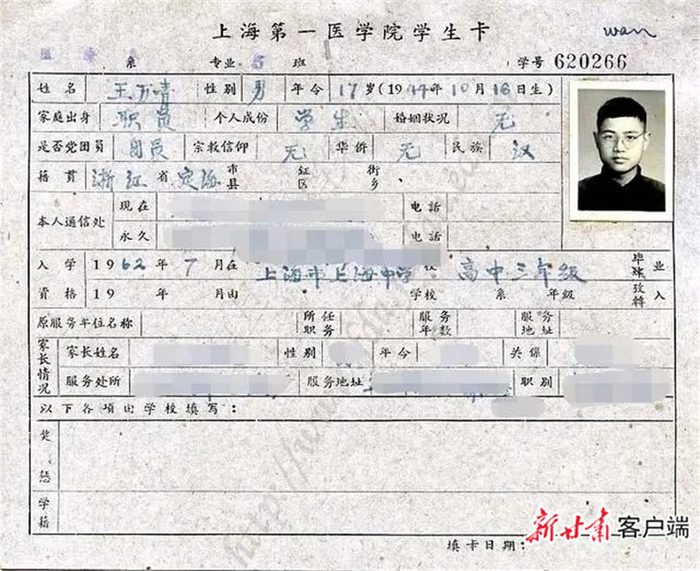 上海第一医学院学生卡
wan
医疗系 专业 5 班 学号 620266
姓名 王万青 性别 男 年令 17 岁(1944年10月16日生)
家庭出身 职员 个人成份 学生 婚姻状况 无
是否党团员 团员 宗教信仰 无 华侨 无 民族 汉
籍贯 浙江省定海市县 区 街乡
本人通信处 现在 电话
永久 电话
入学 1962年7月在上海市上海中学校 高中三年级 毕肄业
资格 19 年 月由 学校 系 年级 转入
原服务单位名称 所任职务 服务年数 服务地址
家长情况 家长姓名 性别 年令 关係
服务处所 服务地址 职别
以下各项由学校填写:
奖惩
学籍
填卡日期:
新甘肃客户端